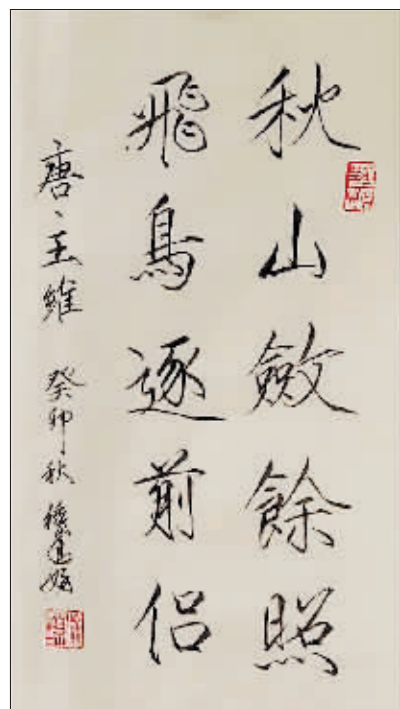 秋山斂餘照
飛鳥逐前侶
唐、王維 癸卯秋